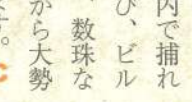 内で捕れ
び、ビル
数珠な
から大勢
す。